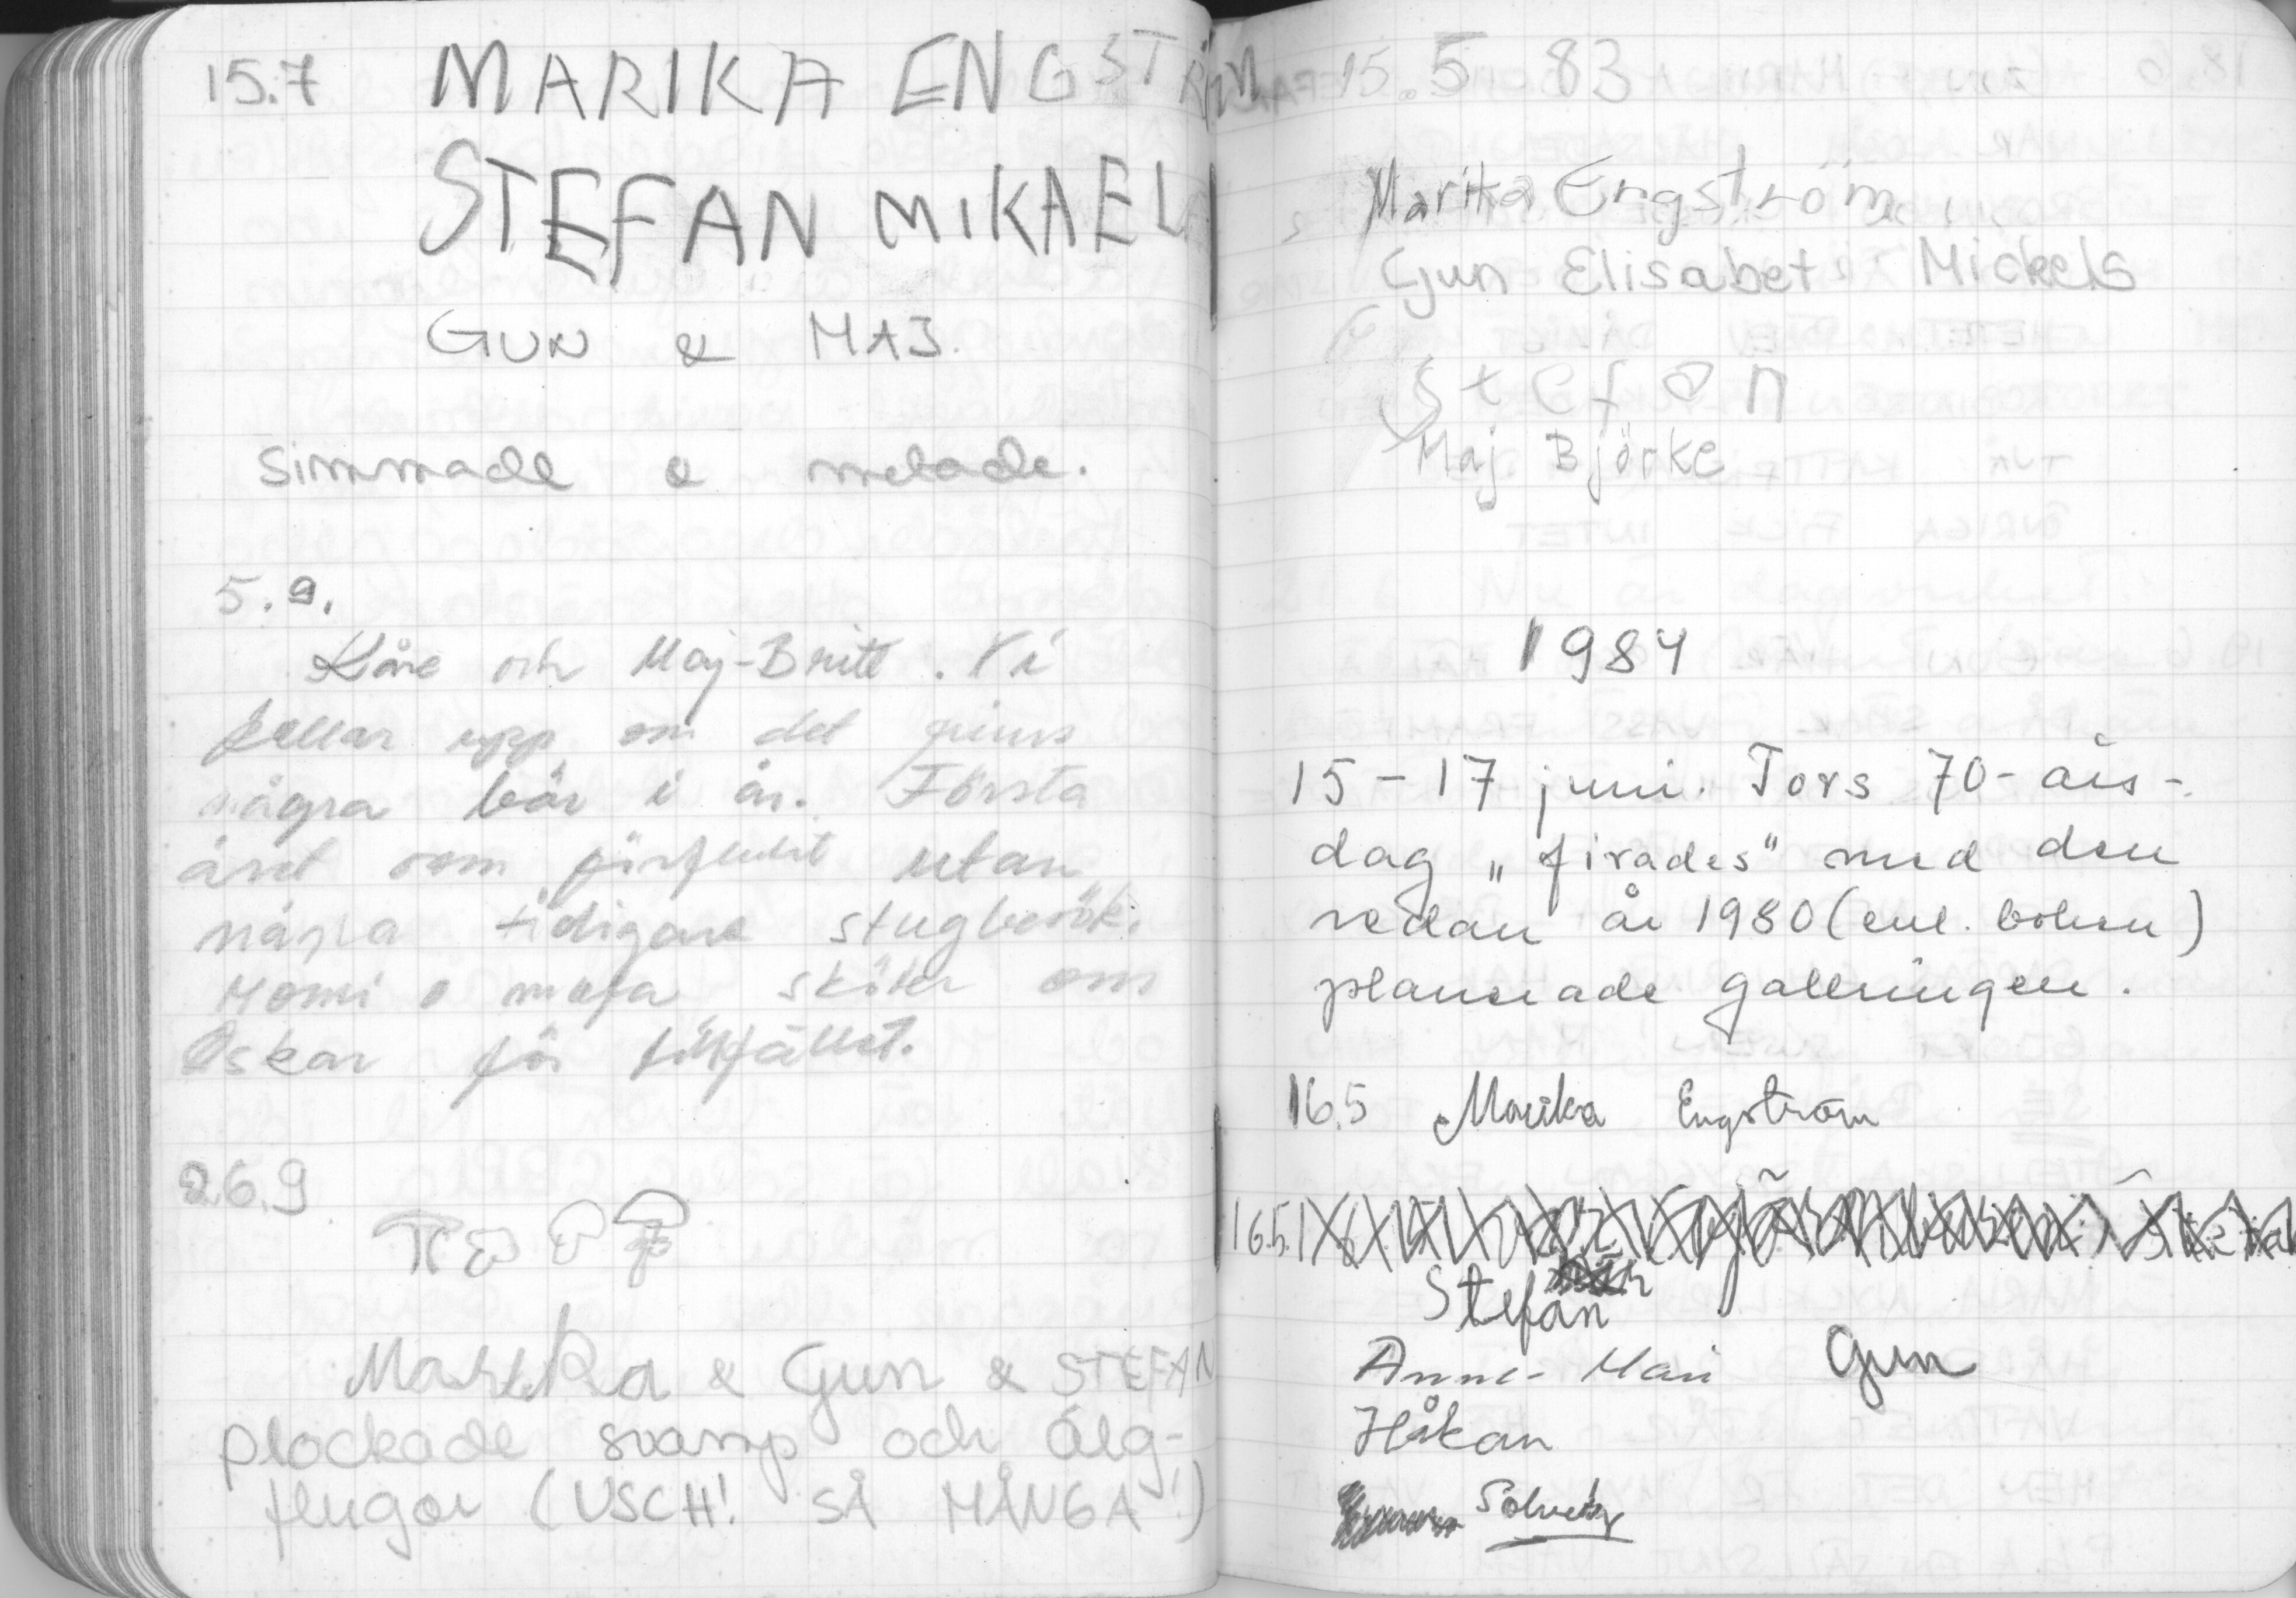 15.7 MARIKA ENGSTRÖM
STEFAN MIKAEL
GUN & MAJ.
Simmade & metade.
5.9.
Kåre och Maj-Britt. Vi
kollar upp om det finns
några bär i år. Första
året som förflutit utan
några tidigare stugbesök.
Mommi o mofa sköter om
Oskar för tillfället.
26.9
Marika & Gun & STEFAN
plockade svamp och älg-
flugor (USCH! SÅ MÅNGA!)
15.5 83
Marika Engström
Gun Elisabet Mickels
Stefan
Maj Björke
1984
15-17 juni. Tors 70-års-
dag „firades" med den
redan år 1980 (enl. boken)
planerade gallringen.
16.5 Marika Engström
16.5.
Stefan
Anne-Mari Gun
Håkan
Solveig